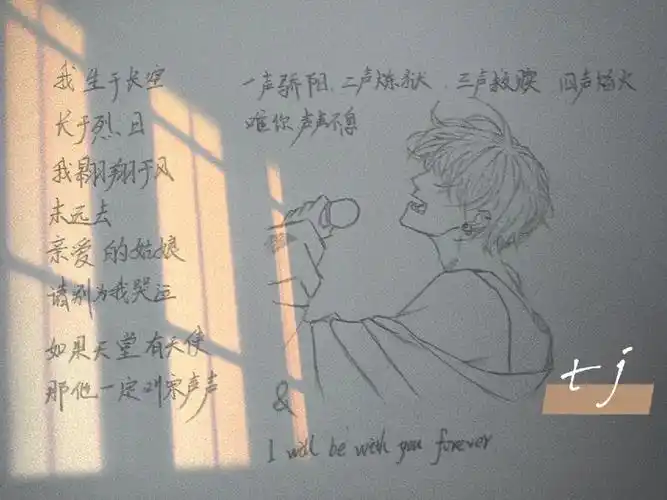 我生于长空
长于烈日
我翱翔于风
未远去
亲爱的姑娘
请别为我哭泣
如果天堂有天使
那他一定叫宋声声
一声骄阳、二声炼狱、三声救赎 四声焰火
难你声声不息
&
I will be with you forever
tj